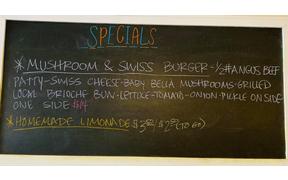 SPECIALS
* MUSHROOM & SWISS BURGER - 1/2 # ANGUS BEEF
PATTY - SWISS CHEESE - BABY BELLA MUSHROOMS - GRILLED
LOCAL BRIOCHE BUN - LETTUCE - TOMATO - ONION - PICKLE ON SIDE
ONE SIDE $14
* HOMEMADE LIMONADE $3 / $2 (TO GO)